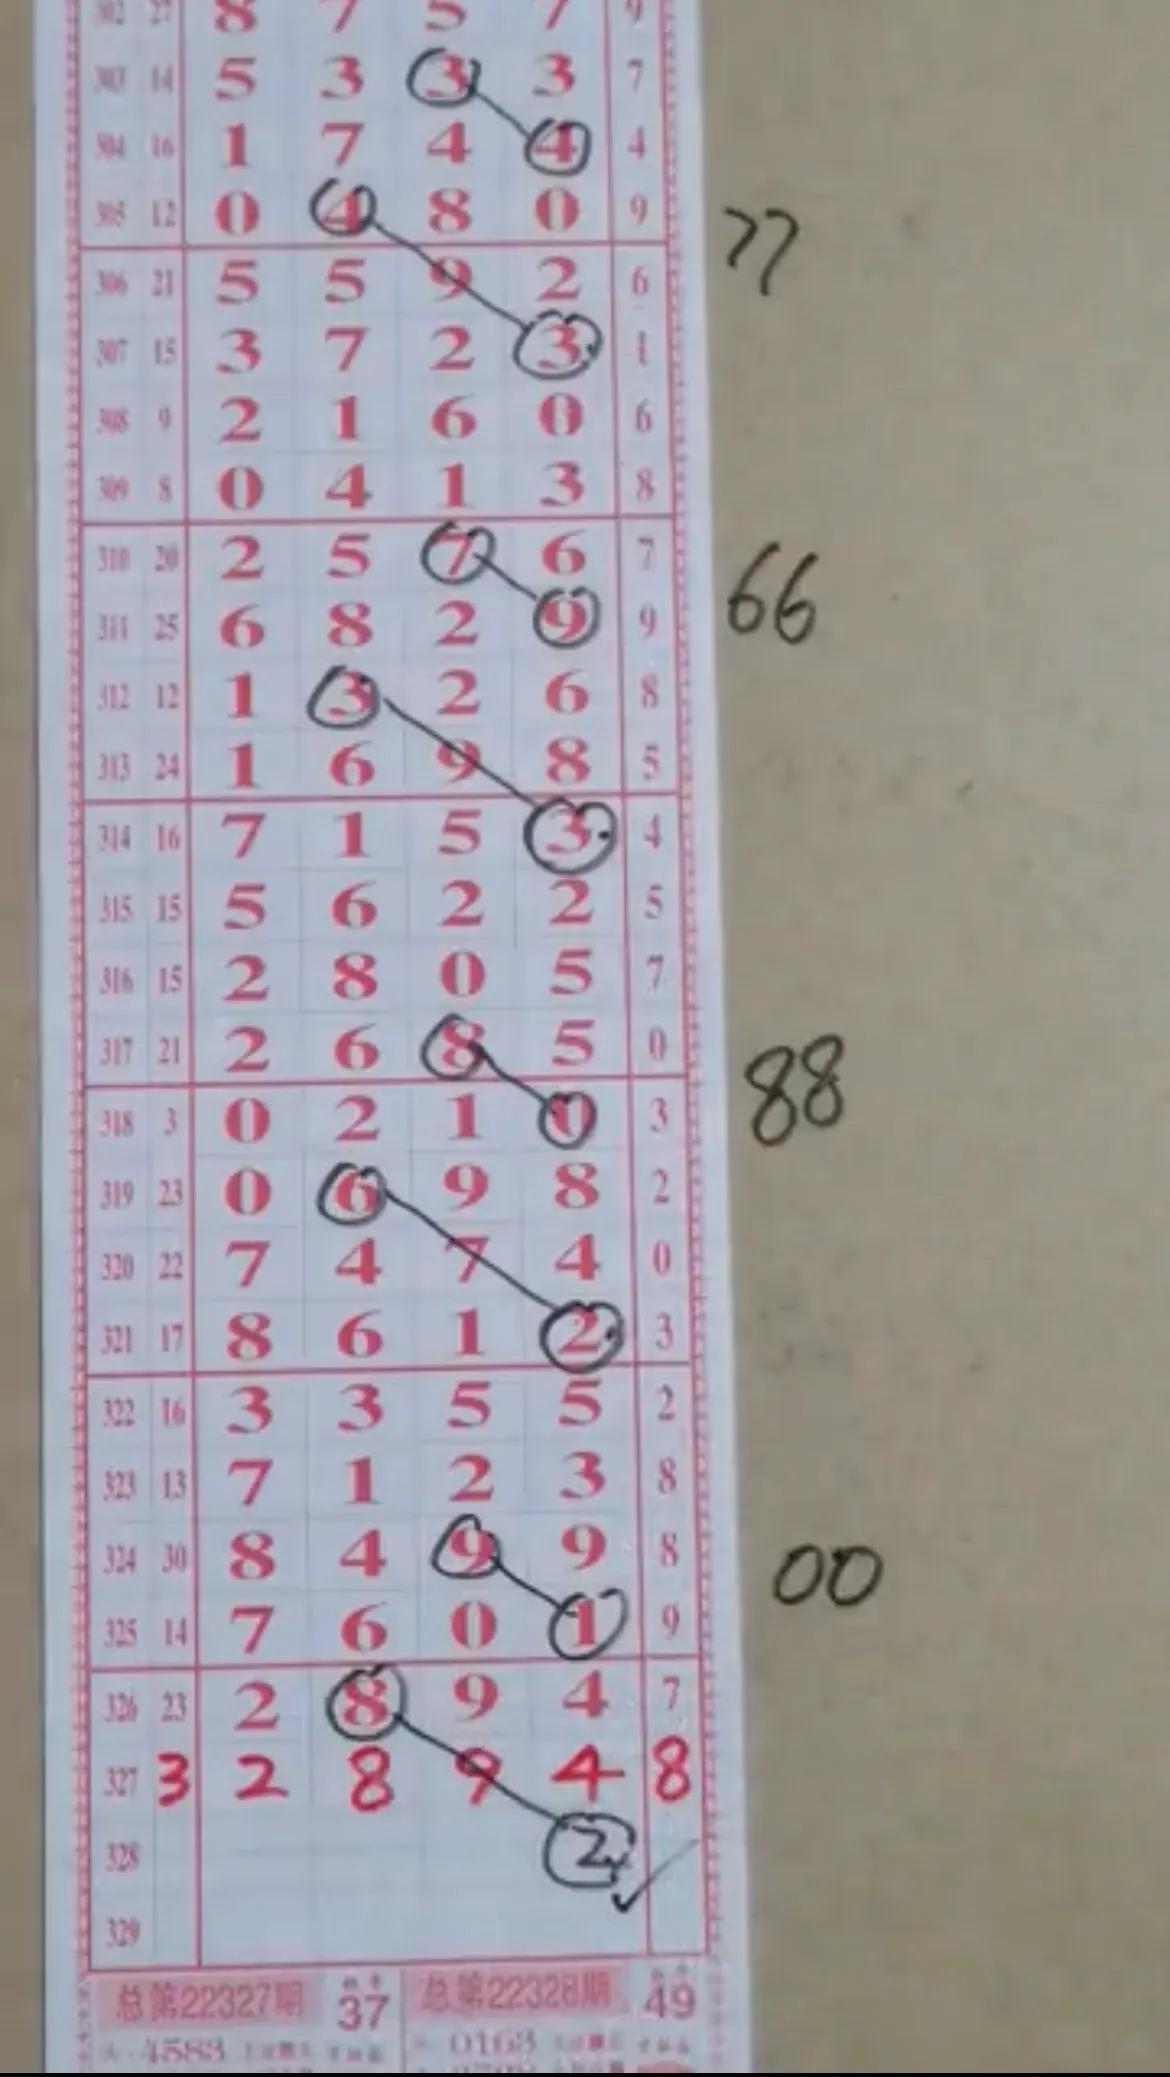 302 27 8 7 5 7 9
303 14 5 3 3 3 7
304 16 1 7 4 4 4
305 12 0 4 8 0 9
77
306 21 5 5 9 2 6
307 15 3 7 2 3 1
308 9 2 1 6 0 6
309 8 0 4 1 3 8
310 20 2 5 7 6 7
66
311 25 6 8 2 9 9
312 12 1 3 2 6 8
313 24 1 6 9 8 5
314 16 7 1 5 3 4
315 15 5 6 2 2 5
316 15 2 8 0 5 7
317 21 2 6 8 5 0
88
318 3 0 2 1 0 3
319 23 0 6 9 8 2
320 22 7 4 7 4 0
321 17 8 6 1 2 3
322 16 3 3 5 5 2
323 13 7 1 2 3 8
324 30 8 4 9 9 8
00
325 14 7 6 0 1 9
326 23 2 8 9 4 7
327 3 2 8 9 4 8
328 2
329
总第22327期 37 总第22328期 49
4583 0163